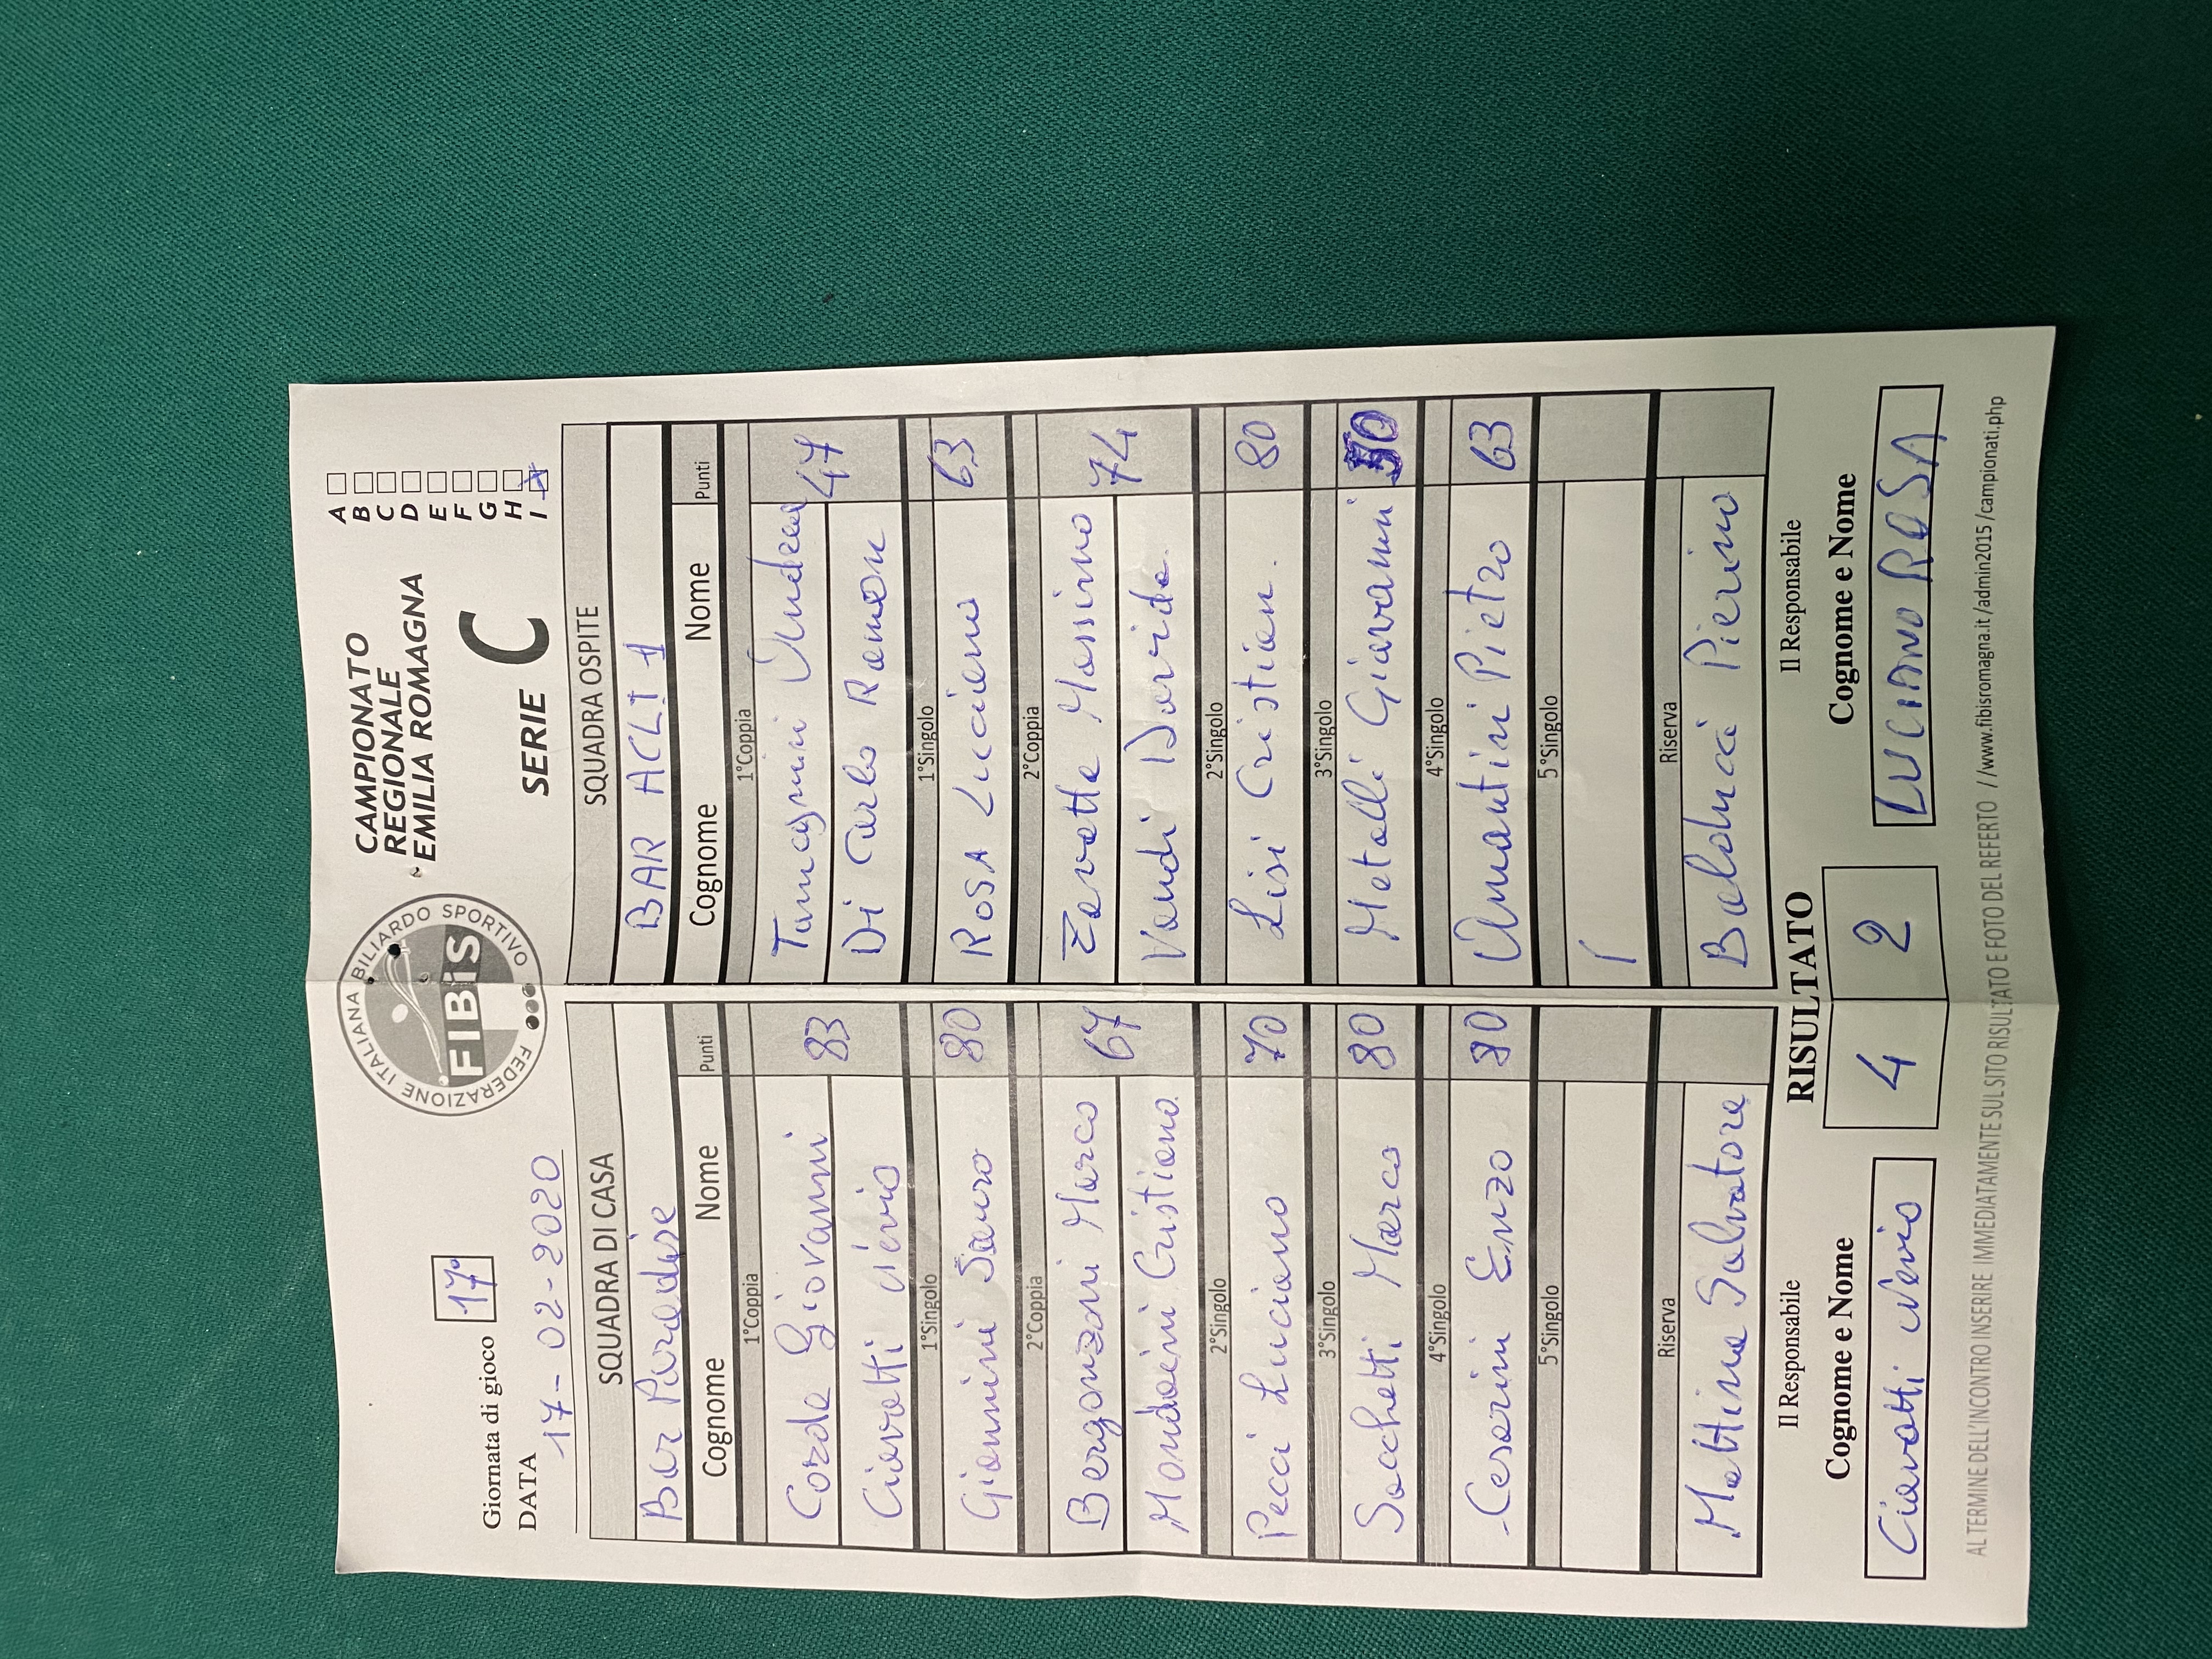 Giornata di gioco 17°
DATA 17-02-2020
FEDERAZIONE ITALIANA BILIARDO SPORTIVO
FIBiS
CAMPIONATO
REGIONALE
EMILIA ROMAGNA
SERIE C
A
B
C
D
E
F
G
H
I
SQUADRA DI CASA
Bar Paradise
Cognome Nome Punti
1°Coppia
Corda Giovanni 83
Ciavatti Nevio
1°Singolo
Giannini Sauro 80
2°Coppia
Bergonzoni Marco 67
Mondaini Cristiano
2°Singolo
Pecci Luciano 70
3°Singolo
Sacchetti Marco 80
4°Singolo
Cesarini Enzo 80
5°Singolo
Riserva
Mattina Salvatore
SQUADRA OSPITE
BAR ACLI 1
Cognome Nome Punti
1°Coppia
Tamagnini Andrea 47
Di Carlo Ramon
1°Singolo
ROSA Luciano 63
2°Coppia
Zavatta Massimo 74
Vandi Davide.
2°Singolo
Lisi Cristian. 80
3°Singolo
Metalli Giovanni 50
4°Singolo
Amantini Pietro 63
5°Singolo
/
Riserva
Balducci Pierino
Il Responsabile
Cognome e Nome
Ciavatti Nevio
RISULTATO
4 2
Il Responsabile
Cognome e Nome
LUCIANO ROSA
AL TERMINE DELL'INCONTRO INSERIRE IMMEDIATAMENTE SUL SITO RISULTATO E FOTO DEL REFERTO //www.fibisromagna.it/admin2015/campionati.php